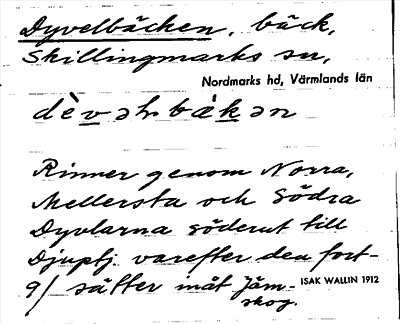 Dyvelbäcken, bäck,
Skillingmarks sn,
Nordmarks hd, Värmlands län
dèvəɫ bákən
Rinner genom Norra,
Mellersta och Södra
Dyvlarna söderut till
Djupfj. varefter den fort-
9/ sätter måt Jäm-
skog.
ISAK WALLIN 1912